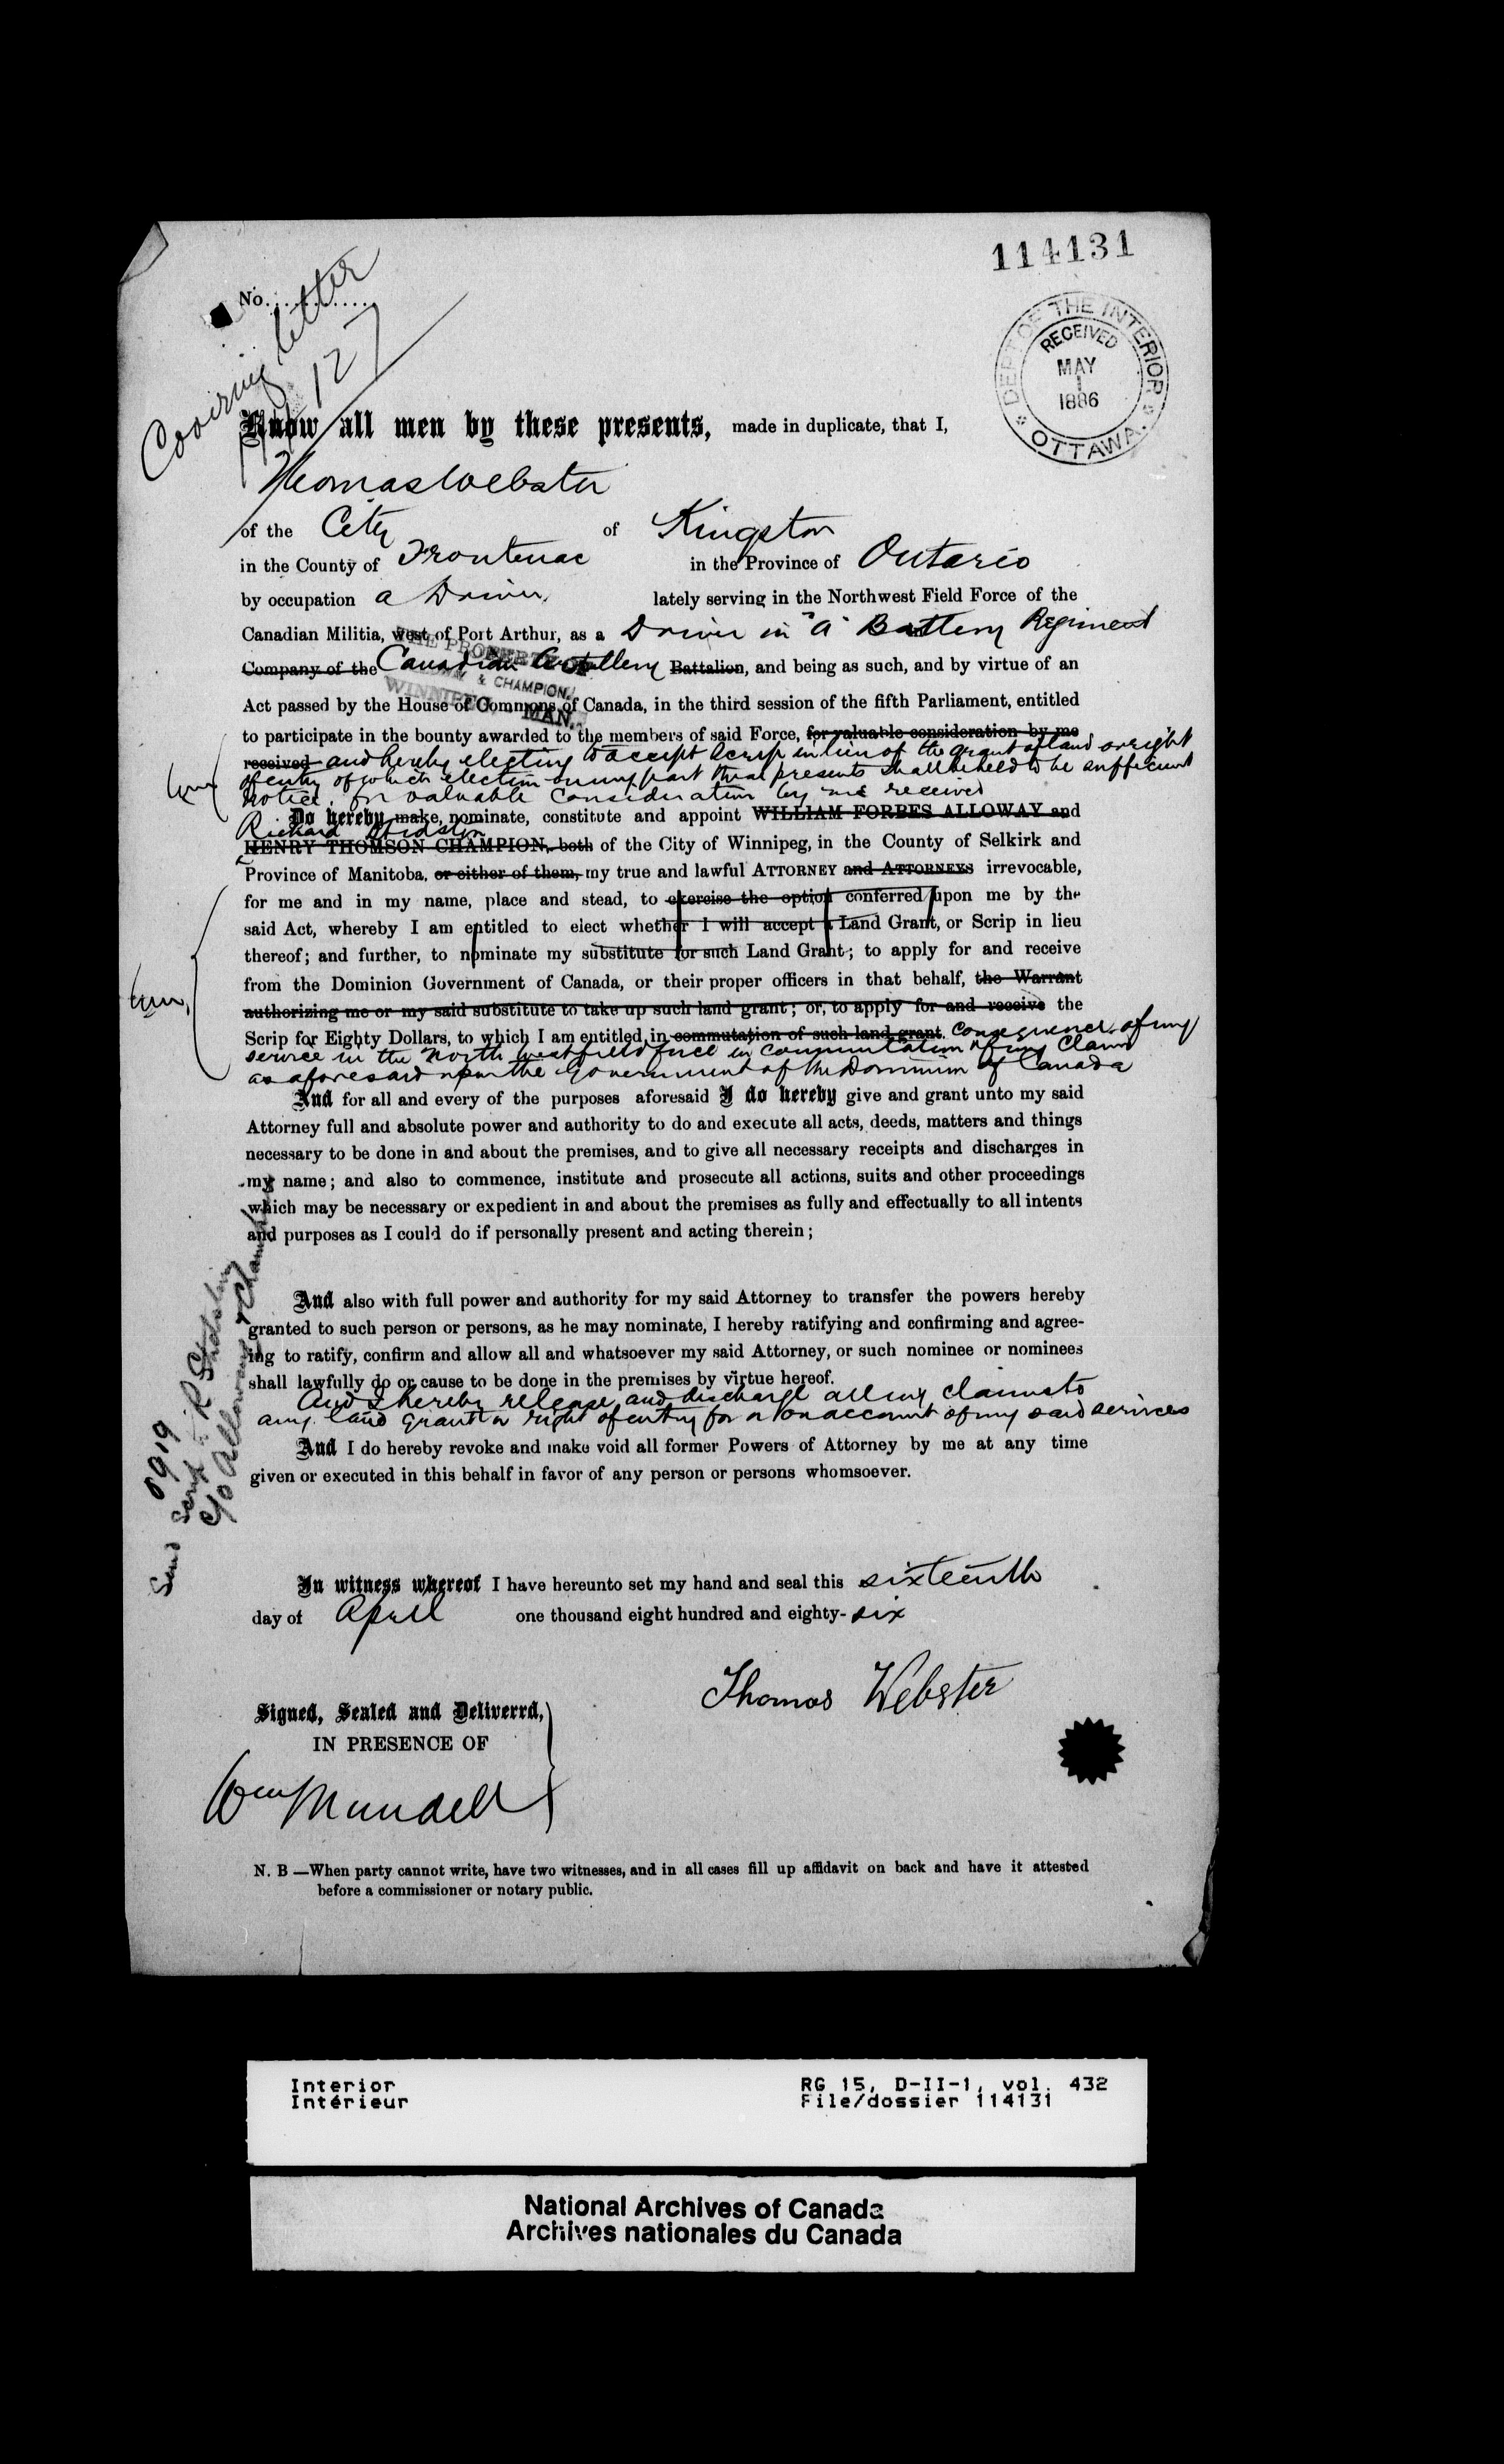 114131
No.............
Covering letter
127
DEPT OF THE INTERIOR
RECEIVED
MAY
1
1886
OTTAWA.
Know all men by these presents, made in duplicate, that I,
Thomas Webster
of the City of Kingston
in the County of Frontenac in the Province of Ontario
by occupation a Driver lately serving in the Northwest Field Force of the
Canadian Militia, west of Port Arthur, as a Driver in "A" Battery Regiment
Company of the Canadian Artillery Battalion, and being as such, and by virtue of an
THE PROPERTY OF
& CHAMPION,
WINNIPEG, MAN.
Act passed by the House of Commons of Canada, in the third session of the fifth Parliament, entitled
to participate in the bounty awarded to the members of said Force, for valuable consideration by me
received and hereby electing to accept Scrip in lieu of the grant of land or right
of entry of which election on my part these presents shall be held to be sufficient
notice, for valuable consideration by me received
Do hereby make, nominate, constitute and appoint WILLIAM FORBES ALLOWAY and
Richard
HENRY THOMSON CHAMPION, both of the City of Winnipeg, in the County of Selkirk and
Province of Manitoba, or either of them, my true and lawful ATTORNEY and ATTORNEYS irrevocable,
for me and in my name, place and stead, to exercise the option conferred upon me by the
said Act, whereby I am entitled to elect whether I will accept a Land Grant, or Scrip in lieu
thereof; and further, to nominate my substitute for such Land Grant; to apply for and receive
from the Dominion Government of Canada, or their proper officers in that behalf, the Warrant
authorizing me or my said substitute to take up such land grant; or, to apply for and receive the
Scrip for Eighty Dollars, to which I am entitled in commutation of such land grant. consequence of my
service in the North west field force in commutation of my claim
as aforesaid upon the Government of the Dominion of Canada
And for all and every of the purposes aforesaid I do hereby give and grant unto my said
Attorney full and absolute power and authority to do and execute all acts, deeds, matters and things
necessary to be done in and about the premises, and to give all necessary receipts and discharges in
my name; and also to commence, institute and prosecute all actions, suits and other proceedings
which may be necessary or expedient in and about the premises as fully and effectually to all intents
and purposes as I could do if personally present and acting therein;
And also with full power and authority for my said Attorney to transfer the powers hereby
granted to such person or persons, as he may nominate, I hereby ratifying and confirming and agree-
ing to ratify, confirm and allow all and whatsoever my said Attorney, or such nominee or nominees
shall lawfully do or cause to be done in the premises by virtue hereof.
And I hereby release and discharge all my claims to
any land grant or right of entry for or on account of my said services
And I do hereby revoke and make void all former Powers of Attorney by me at any time
given or executed in this behalf in favor of any person or persons whomsoever.
Send Scrip to R
c/o Alloway & Champion
In witness whereof I have hereunto set my hand and seal this sixteenth
day of April one thousand eight hundred and eighty-six
Thomas Webster
Signed, Sealed and Delivered,
IN PRESENCE OF
Wm Mundell
N. B —When party cannot write, have two witnesses, and in all cases fill up affidavit on back and have it attested
before a commissioner or notary public.
Interior
Intérieur
RG 15, D-II-1, vol. 432
File/dossier 114131
National Archives of Canada
Archives nationales du Canada